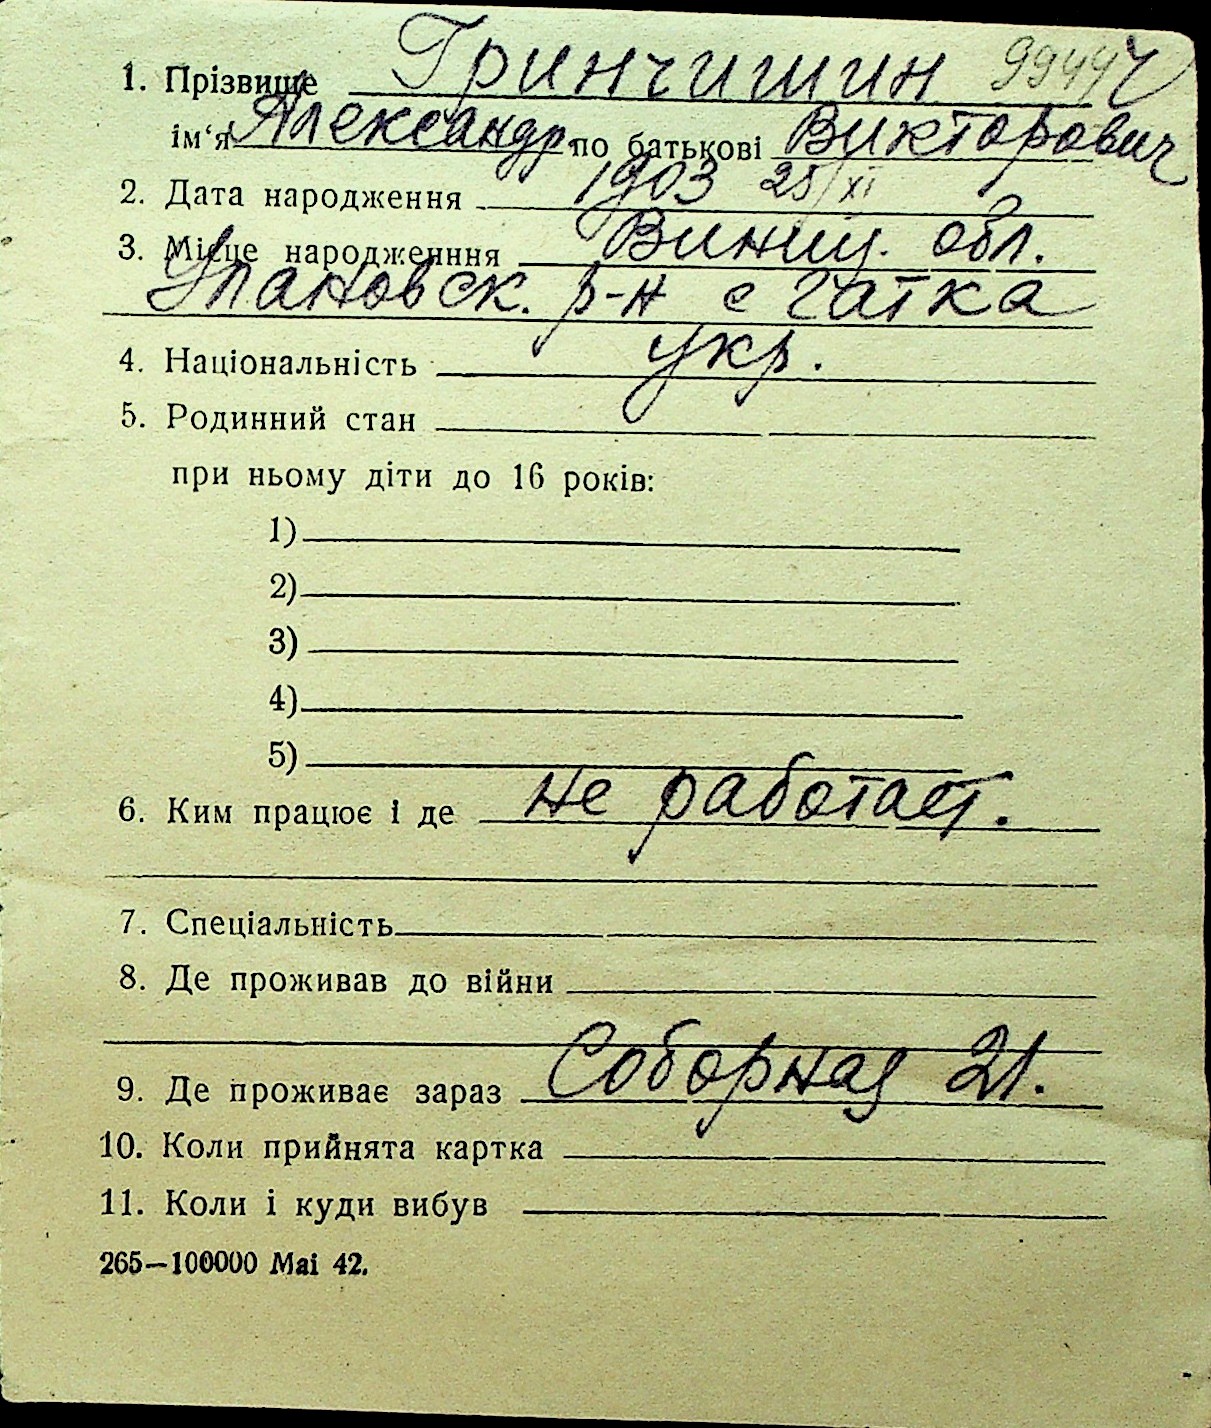 1. Прізвище Гринчишин 99444
ім‘я Александр по батькові Викторович
2. Дата народження 1903 25/XI
3. Місце народженння Винниц. обл.
Улановск. р-н с Гатка
4. Національність укр.
5. Родинний стан
при ньому діти до 16 років:
1)
2)
3)
4)
5)
6. Ким працює і де не работает.
7. Спеціальність
8. Де проживав до війни
9. Де проживає зараз Соборная 21.
10. Коли прийнята картка
11. Коли і куди вибув
265—100000 Mai 42.